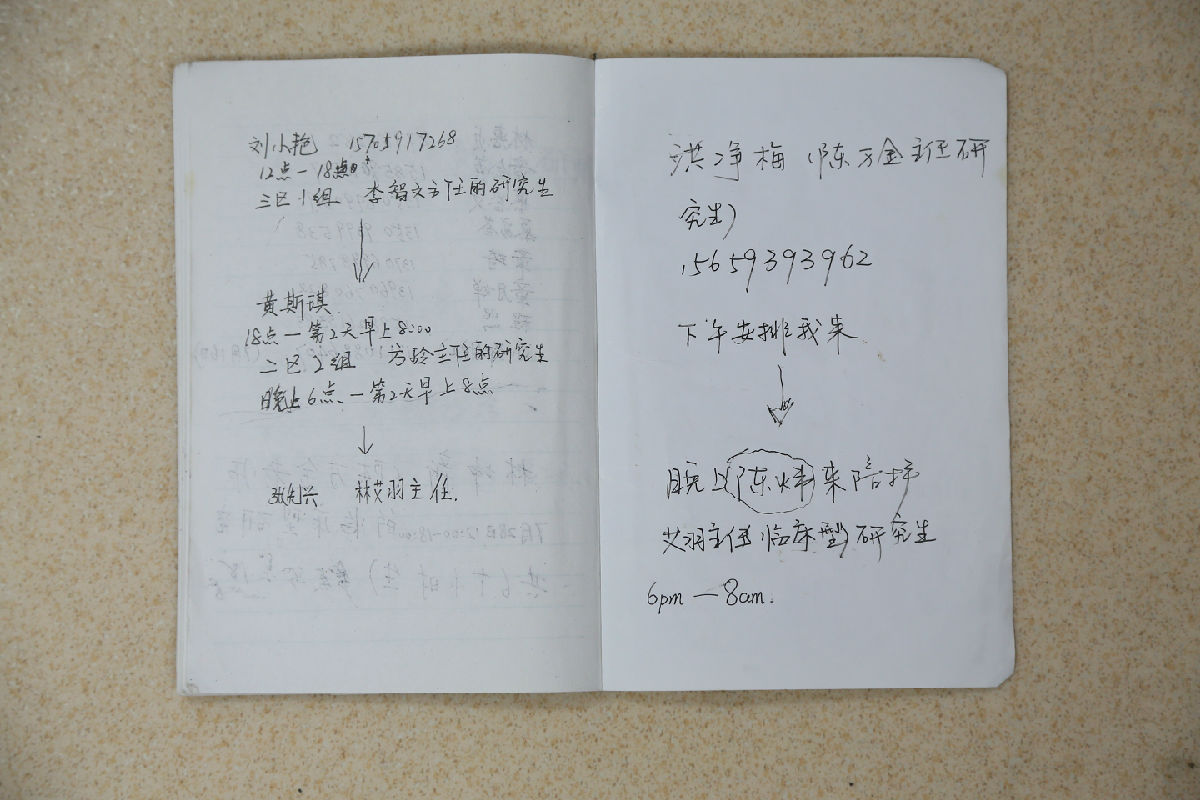 刘小艳 15705917268
12点—18点
三区1组 李智文主任的研究生
黄斯琪
18点—第2天早上8:00
二区2组 方玲主任的研究生
晚上6点—第2天早上8点
张知兴 林艾羽主任.
洪净梅 (陈万金主任研
究生)
15659393962
下午安排我来
晚上(陈炜)来陪护
艾羽主任临床型研究生
6pm—8am.